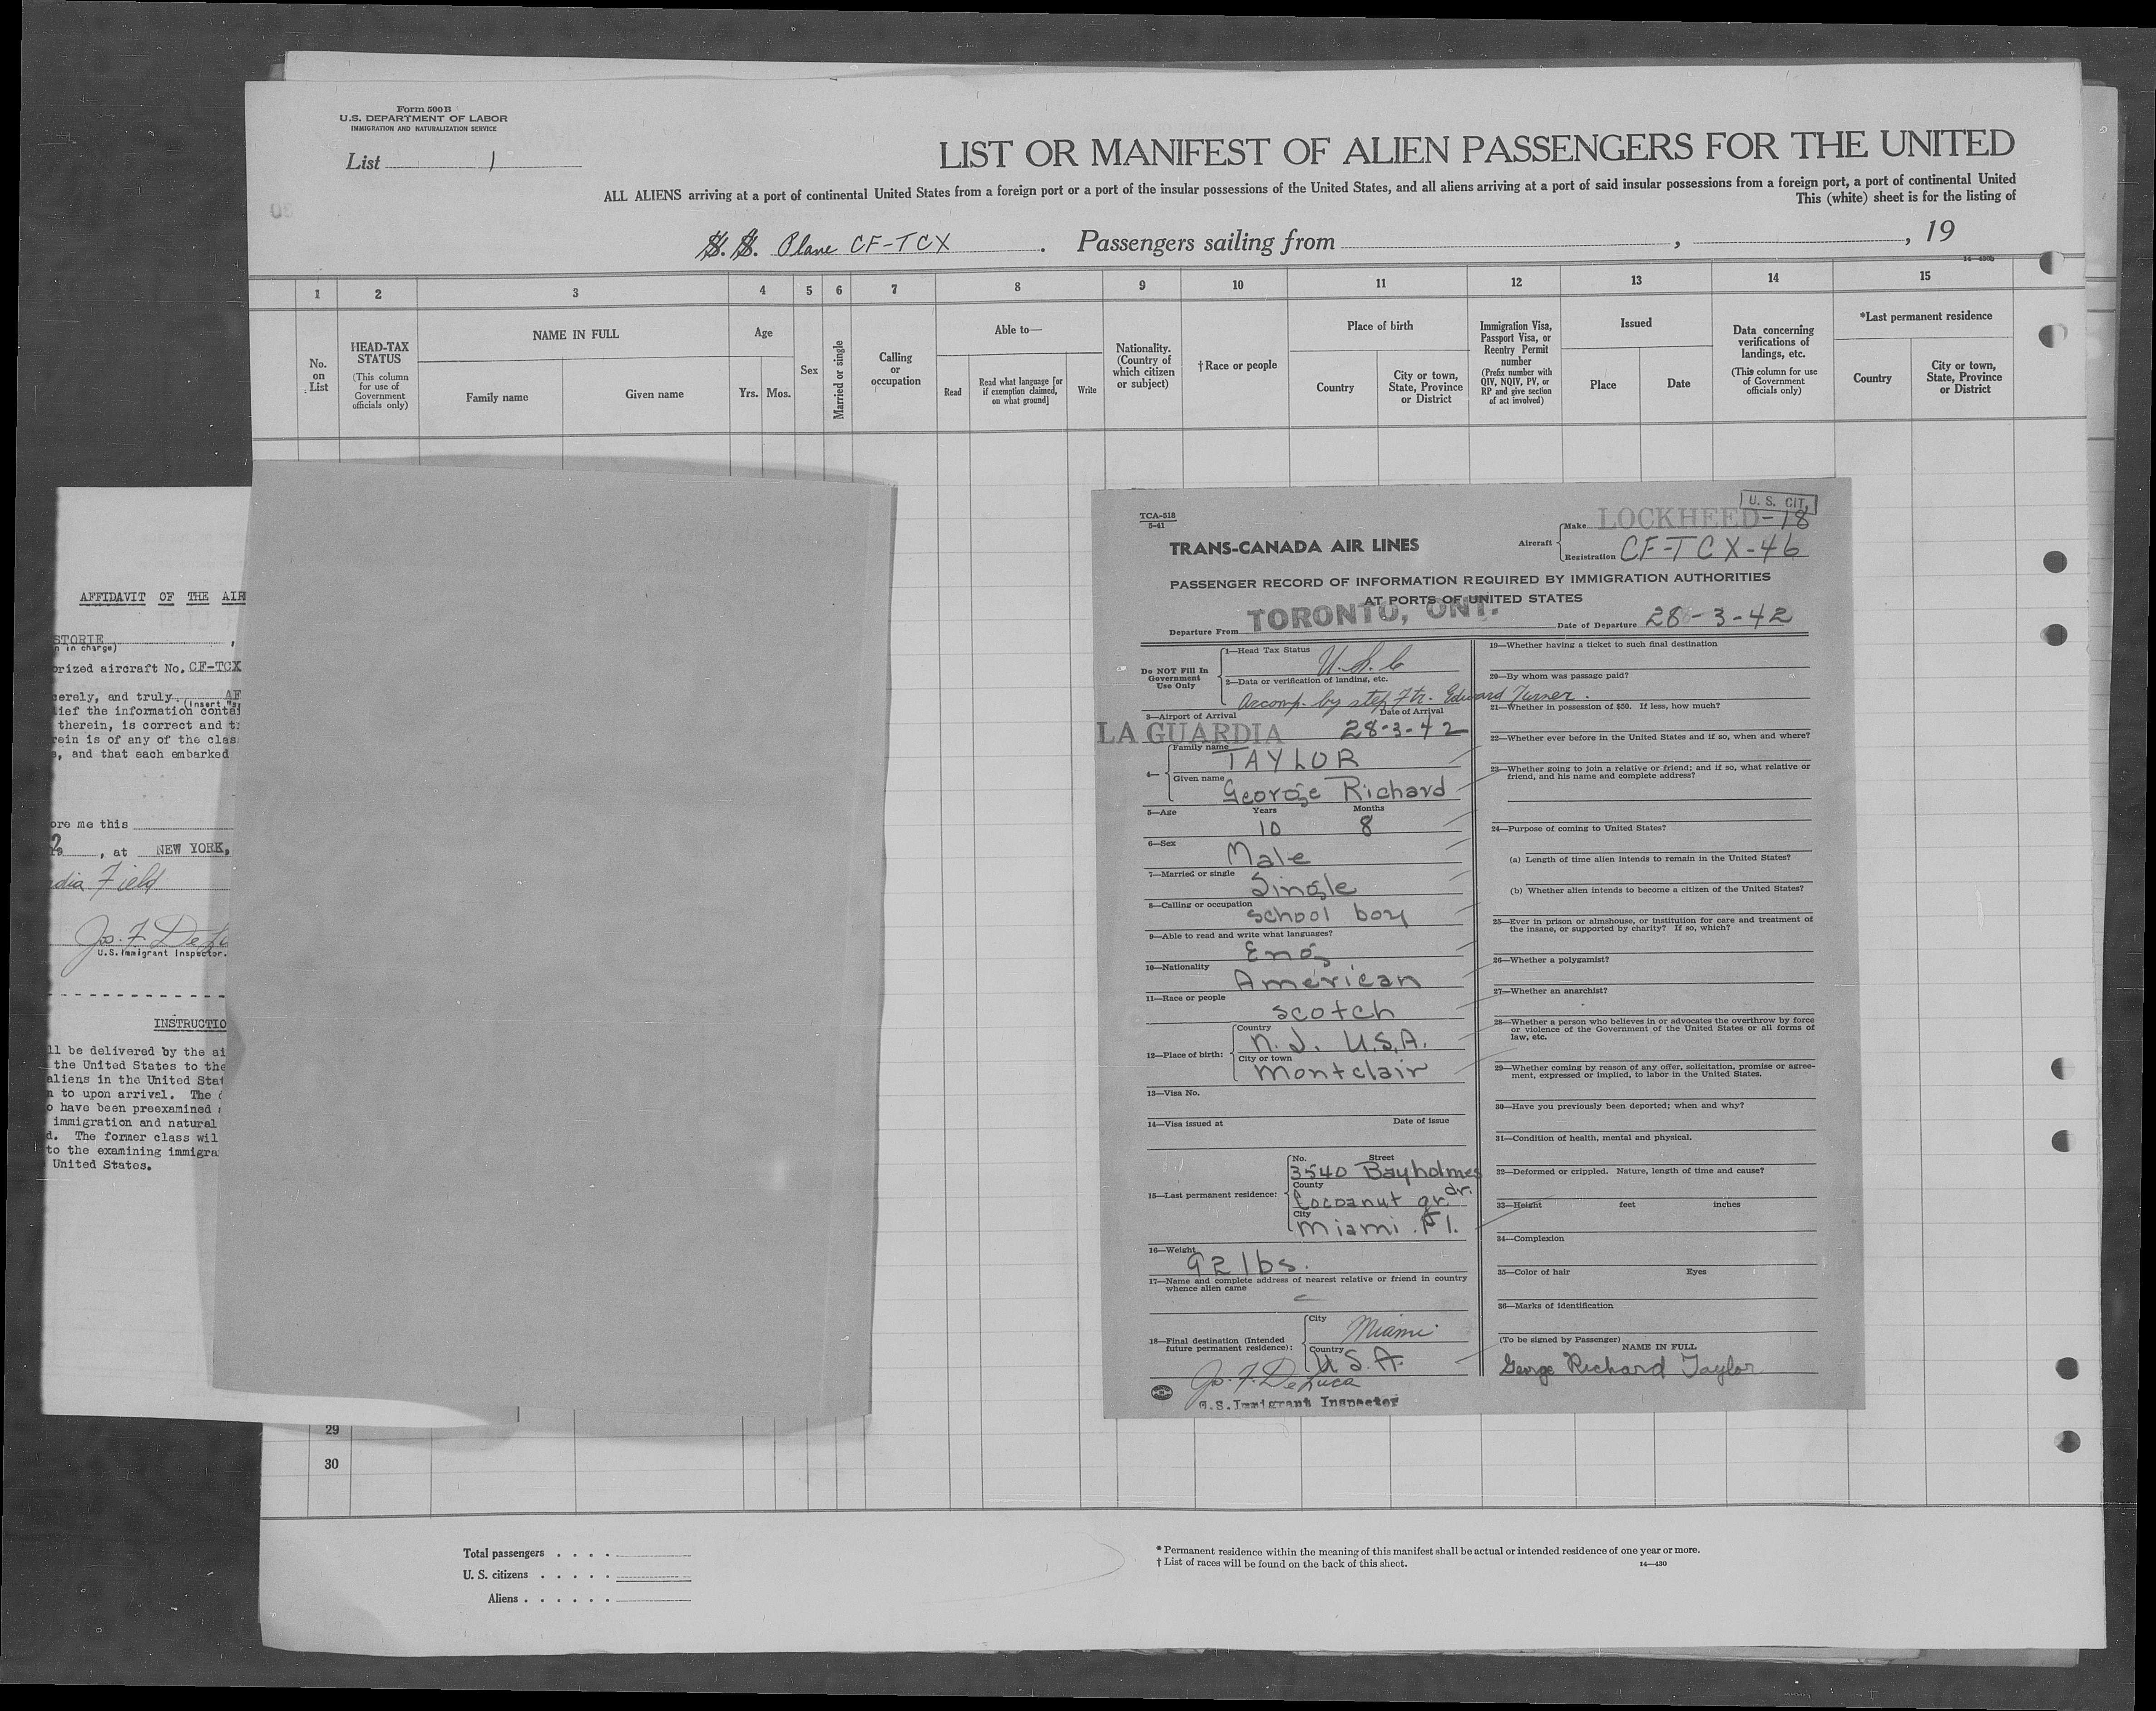 Form 500 B
U.S. DEPARTMENT OF LABOR
IMMIGRATION AND NATURALIZATION SERVICE
List 1
LIST OR MANIFEST OF ALIEN PASSENGERS FOR THE UNITED
ALL ALIENS arriving at a port of continental United States from a foreign port or a port of the insular possessions of the United States, and all aliens arriving at a port of said insular possessions from a foreign port, a port of continental United
This (white) sheet is for the listing of
S. S. Plane CF-TCX . Passengers sailing from , , 19
14—430b
1 2 3 4 5 6 7 8 9 10 11 12 13 14 15
No. on List
HEAD-TAX STATUS
(This column for use of Government officials only)
NAME IN FULL
Family name
Given name
Age
Yrs. Mos.
Sex
Married or single
Calling or occupation
Able to—
Read
Read what language [or if exemption claimed, on what ground]
Write
Nationality. (Country of which citizen or subject)
†Race or people
Place of birth
Country
City or town, State, Province or District
Immigration Visa, Passport Visa, or Reentry Permit number
(Prefix number with QIV, NQIV, PV, or RP and give section of act involved)
Issued
Place
Date
Data concerning verifications of landings, etc.
(This column for use of Government officials only)
*Last permanent residence
Country
City or town, State, Province or District
AFFIDAVIT OF THE AIR
STORIE ,
n in charge)
orized aircraft No. CF-TCX
cerely, and truly AF
(Insert
lief the information contai
therein, is correct and t
rein is of any of the clas
, and that each embarked
ore me this
, at NEW YORK,
dia Field
Jos. F. DeLu
U.S. Immigrant Inspector.
INSTRUCTIO
ll be delivered by the ai
the United States to the
aliens in the United Stat
n to upon arrival. The
o have been preexamined
immigration and natural
d. The former class wil
to the examining immigra
United States.
TCA-518
5-41
U. S. CIT.
TRANS-CANADA AIR LINES
Aircraft
Make LOCKHEED-18
Registration CF-TCX-46
PASSENGER RECORD OF INFORMATION REQUIRED BY IMMIGRATION AUTHORITIES
AT PORTS OF UNITED STATES
Departure From TORONTO, ONT.
Date of Departure 28-3-42
Do NOT Fill In
Government
Use Only
1—Head Tax Status U.S.C
2—Data or verification of landing, etc.
Accomp. by step ftr. Edward Turner.
3—Airport of Arrival Date of Arrival
LA GUARDIA 28-3-42
4—
Family name TAYLOR
Given name George Richard
5—Age Years Months
10 8
6—Sex
Male
7—Married or single
Single
8—Calling or occupation
school boy
9—Able to read and write what languages?
Eng
10—Nationality
American
11—Race or people
scotch
12—Place of birth:
Country
N. J. U.S.A.
City or town
Montclair
13—Visa No.
14—Visa issued at Date of issue
15—Last permanent residence:
No. Street
3540 Bayholmes dr.
County
Cocoanut gr
City
Miami Fl.
16—Weight
92 lbs.
17—Name and complete address of nearest relative or friend in country
whence alien came
18—Final destination (Intended
future permanent residence):
City
Miami
Country
U.S.A.
Jos. F. DeLuca
U.S. Immigrant Inspector
19—Whether having a ticket to such final destination
20—By whom was passage paid?
21—Whether in possession of $50. If less, how much?
22—Whether ever before in the United States and if so, when and where?
23—Whether going to join a relative or friend; and if so, what relative or
friend, and his name and complete address?
24—Purpose of coming to United States?
(a) Length of time alien intends to remain in the United States?
(b) Whether alien intends to become a citizen of the United States?
25—Ever in prison or almshouse, or institution for care and treatment of
the insane, or supported by charity? If so, which?
26—Whether a polygamist?
27—Whether an anarchist?
28—Whether a person who believes in or advocates the overthrow by force
or violence of the Government of the United States or all forms of
law, etc.
29—Whether coming by reason of any offer, solicitation, promise or agree-
ment, expressed or implied, to labor in the United States.
30—Have you previously been deported; when and why?
31—Condition of health, mental and physical.
32—Deformed or crippled. Nature, length of time and cause?
33—Height feet inches
34—Complexion
35—Color of hair Eyes
36—Marks of identification
(To be signed by Passenger)
NAME IN FULL
George Richard Taylor
29
30
Total passengers . . . .
U. S. citizens . . . . .
Aliens . . . . . .
* Permanent residence within the meaning of this manifest shall be actual or intended residence of one year or more.
† List of races will be found on the back of this sheet.
14—430